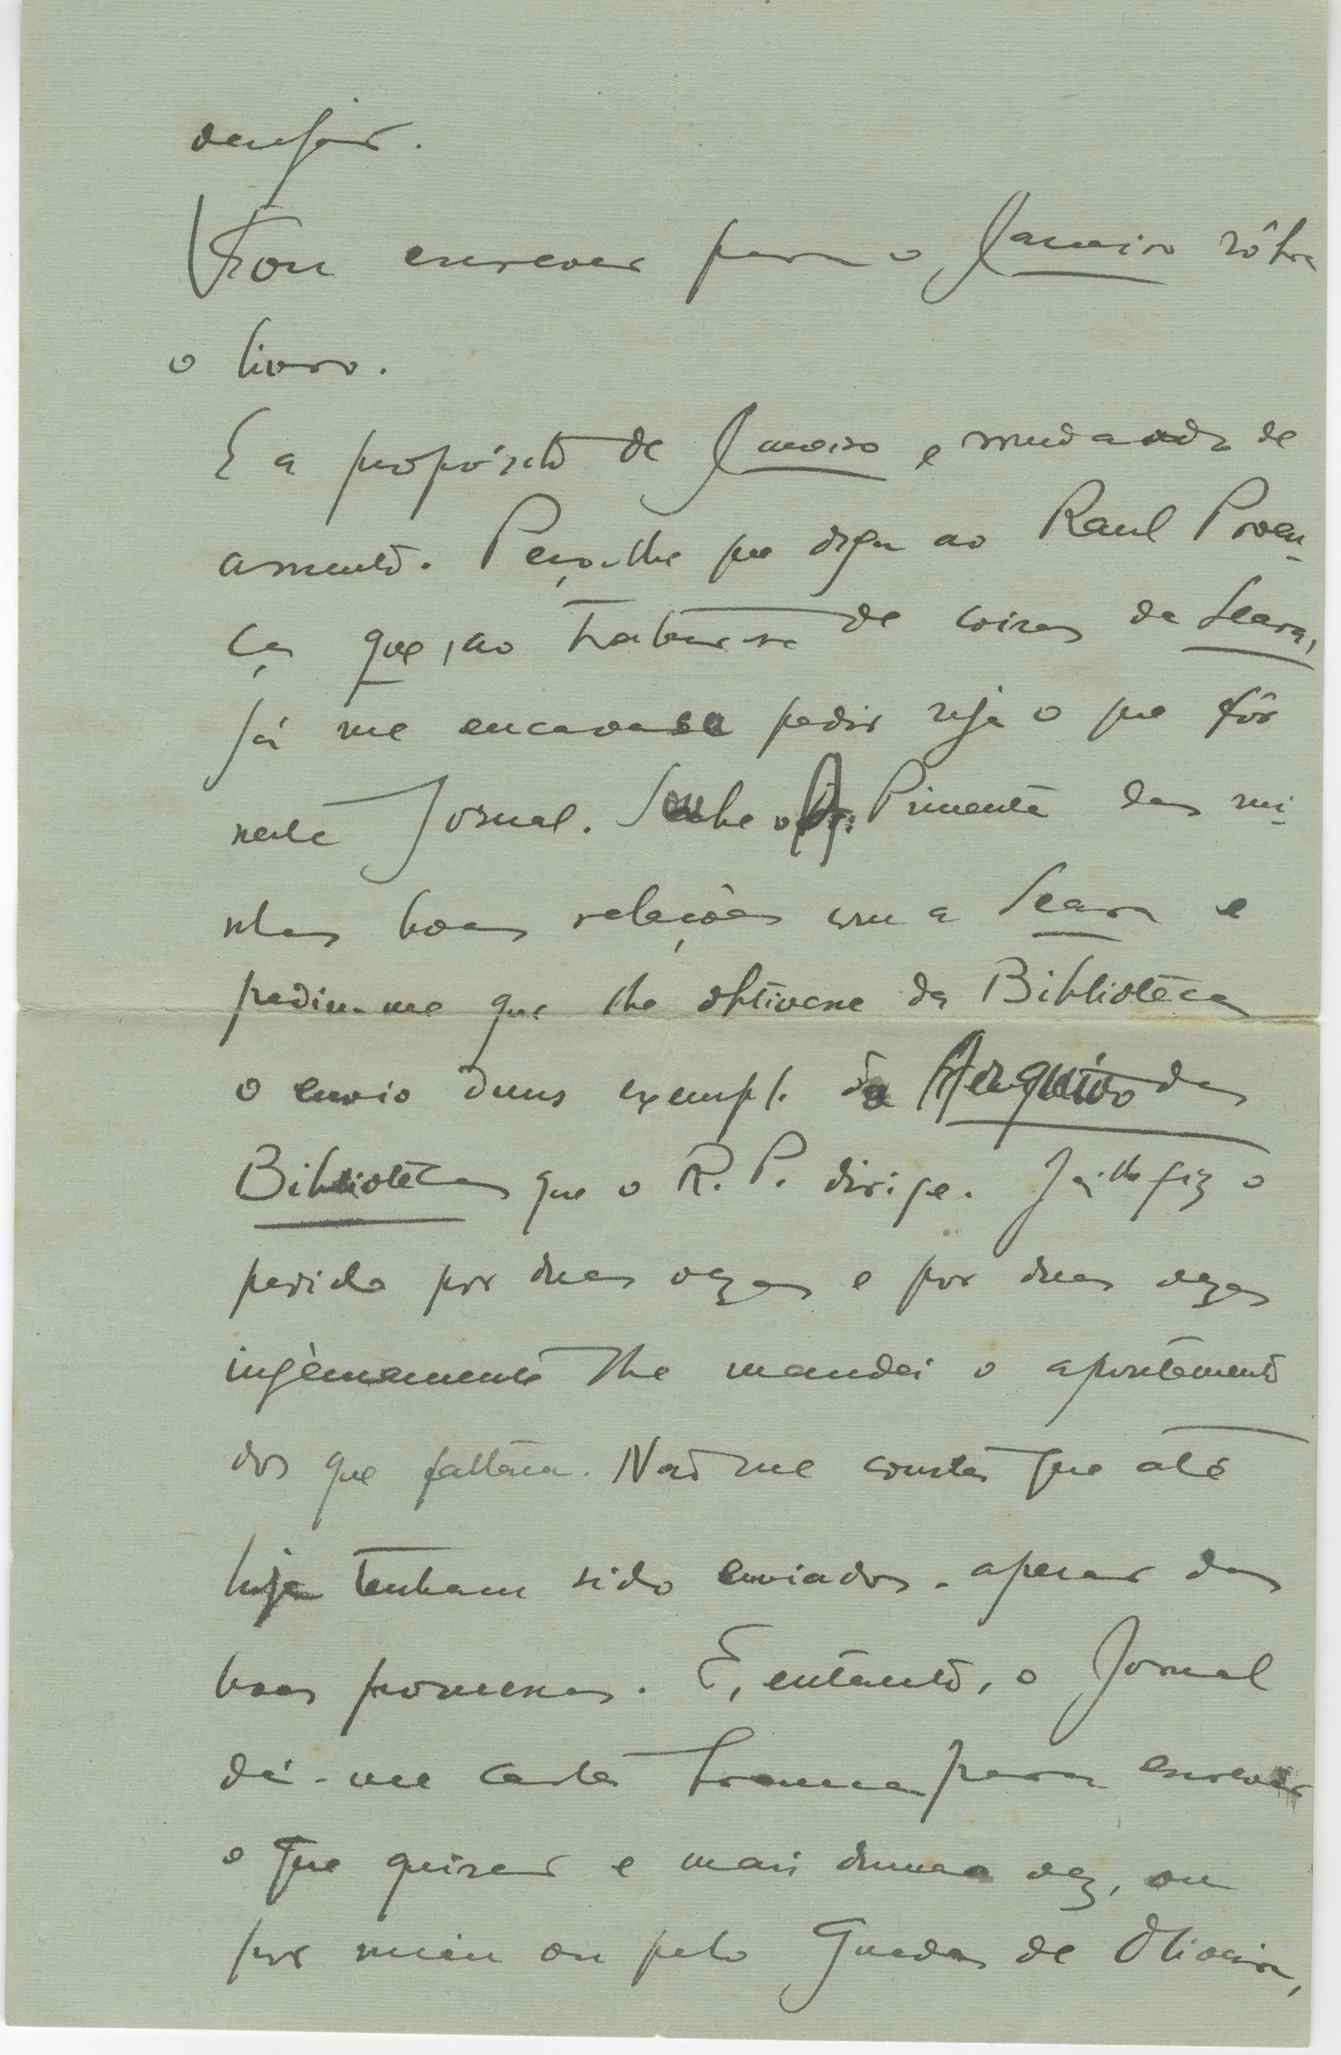 desejar.
Vou escrever para o Janeiro sôbre
o livro.
E a propósito de Janeiro e mudando de
assunto. Peço-lhe que diga ao Raul Proen-
ça que, ao tratar-se de coisas da Seara,
já me encarecera pedir seja o que fôr
neste Jornal. Sabe o Pimenta das mi-
nhas boas relações com a Seara e
pediu-me que lhe obtivesse da Bibliotéca
o envio duns exempl. do Arquivo das
Bibliotécas que o R. P. dirige. Já lhe fiz o
pedido por duas vezes e por duas vezes
ingènuamente lhe mandei o apontamento
dos que faltam. Não me consta que até
hoje tenham sido enviados, apesar das
boas promessas. E, entanto, o Jornal
dá-me carta branca para escrever
o que quiser e mais duma vez, ou
por mim ou pelo Guedes de Oliveira,